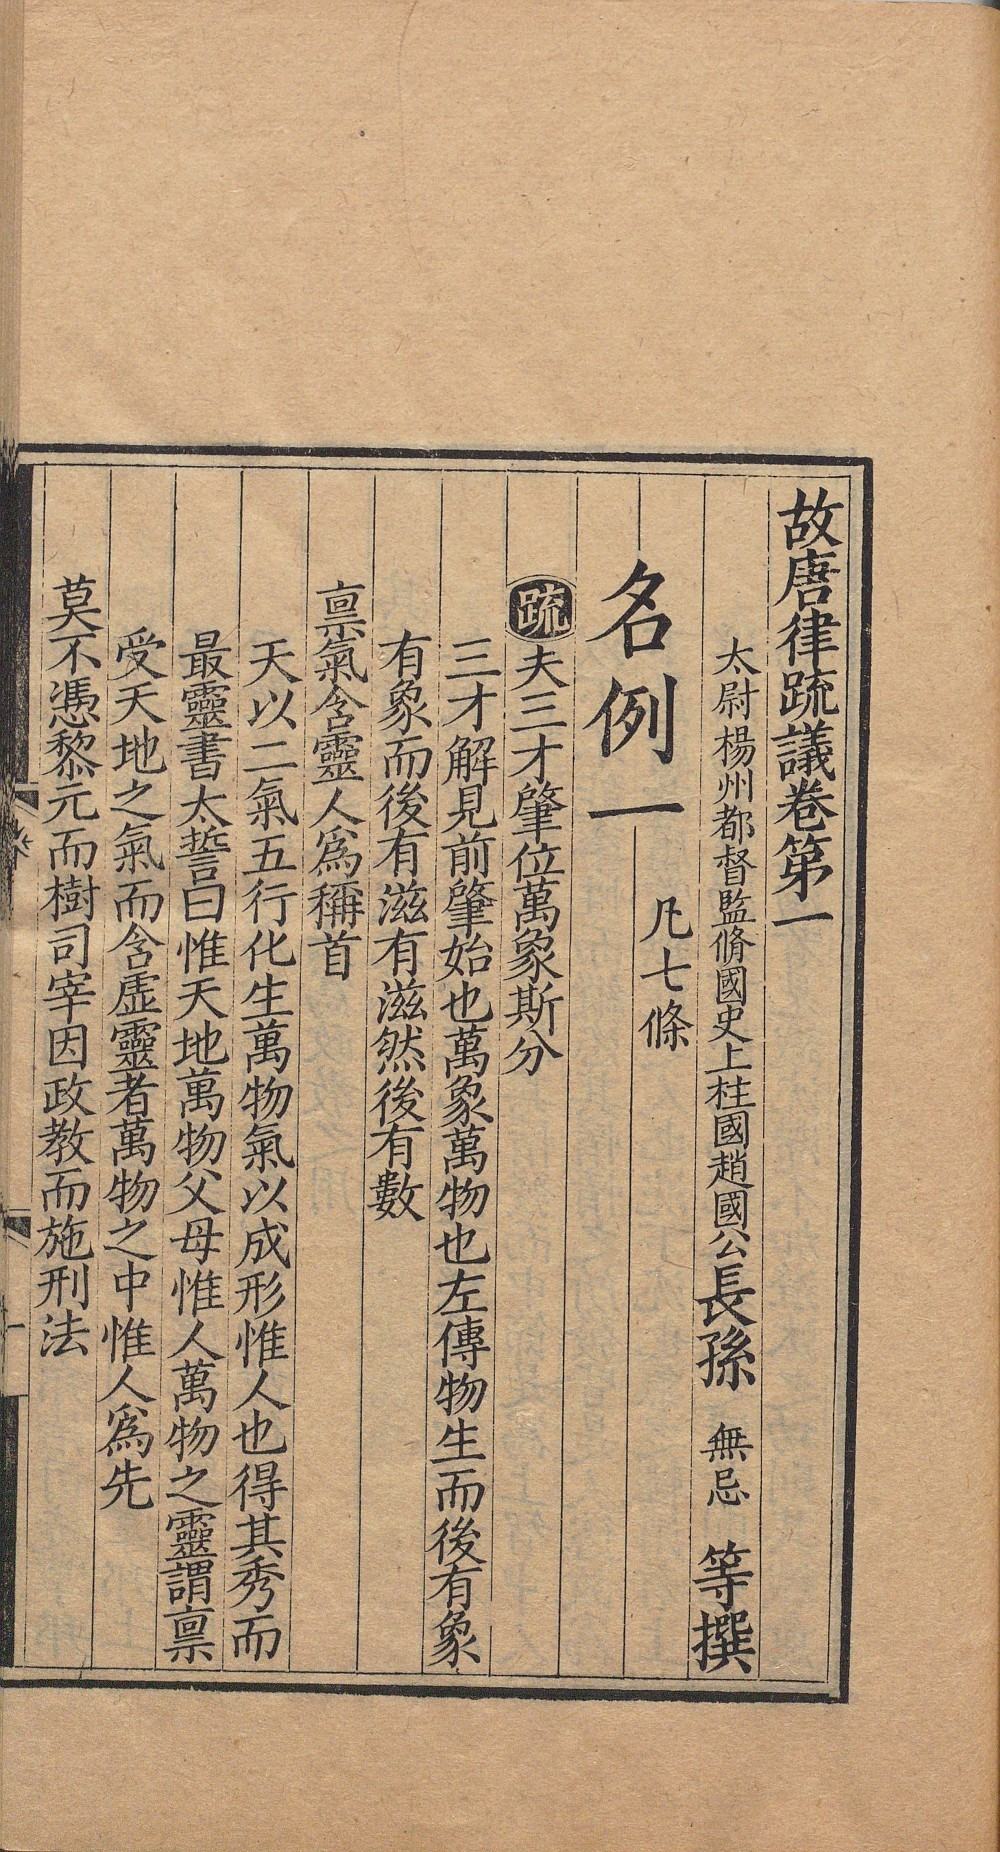 故唐律疏議卷第一
太尉楊州都督監脩國史上柱國趙國公長孫無忌等撰
名例一
凡七條
疏夫三才肇位萬象斯分
三才解見前肇始也萬象萬物也左傳物生而後有象
有象而後有滋有滋然後有數
禀氣含靈人爲稱首
天以二氣五行化生萬物氣以成形惟人也得其秀而
最靈書太誓曰惟天地萬物父母惟人萬物之靈謂禀
受天地之氣而含虛靈者萬物之中惟人爲先
莫不憑黎元而樹司宰因政教而施刑法